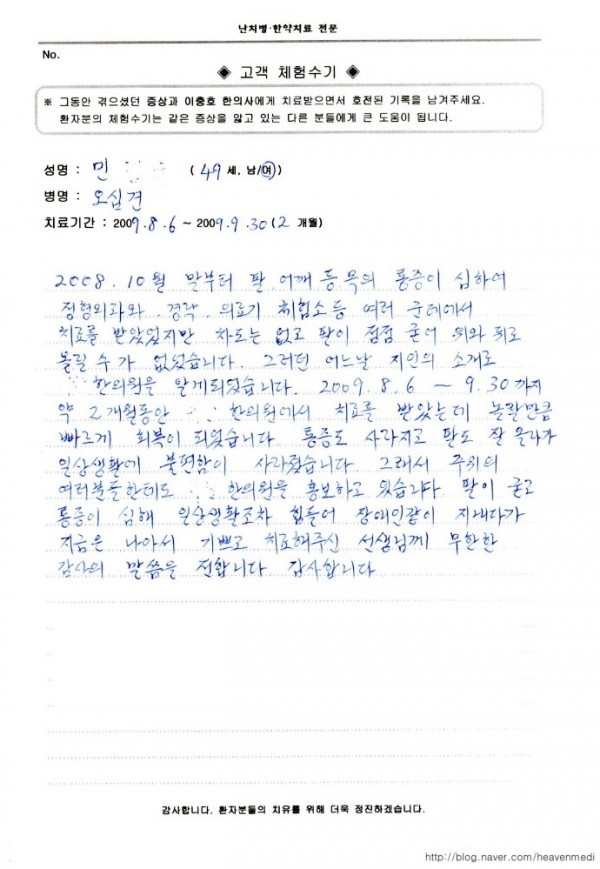 난치병·한약치료 전문
No.
◈ 고객 체험수기 ◈
※ 그동안 겪으셨던 증상과 이충호 한의사에게 치료받으면서 호전된 기록을 남겨주세요.
환자분의 체험수기는 같은 증상을 앓고 있는 다른 분들에게 큰 도움이 됩니다.
성명 : 민 ( 49 세, 남/여 )
병명 : 오십견
치료기간 : 2009.8.6 ~ 2009.9.30 (2 개월)
2008.10월 말부터 팔.어깨 등.목의 통증이 심하여
정형외과와 .경락.의료기 체험소등 여러 군데에서
치료를 받았었지만 차도는 없고 팔이 점점 굳어 위와 뒤로
올릴 수가 없었습니다. 그러던 어느날 지인의 소개로
한의원을 알게되었습니다. 2009.8.6 ~ 9.30까지
약 2개월동안 한의원에서 치료를 받았는데 놀랄만큼
빠르게 회복이 되었습니다 통증도 사라지고 팔도 잘 올라가
일상생활에 불편함이 사라졌습니다 그래서 주위의
여러분들한테도 한의원을 홍보하고 있습니다 팔이 굳고
통증이 심해 일상생활조차 힘들어 장애인같이 지내다가
지금은 나아서 기쁘고 치료해주신 선생님께 무한한
감사의 말씀을 전합니다 감사합니다
감사합니다. 환자분들의 치유를 위해 더욱 정진하겠습니다.
http://blog.naver.com/heavenmedi